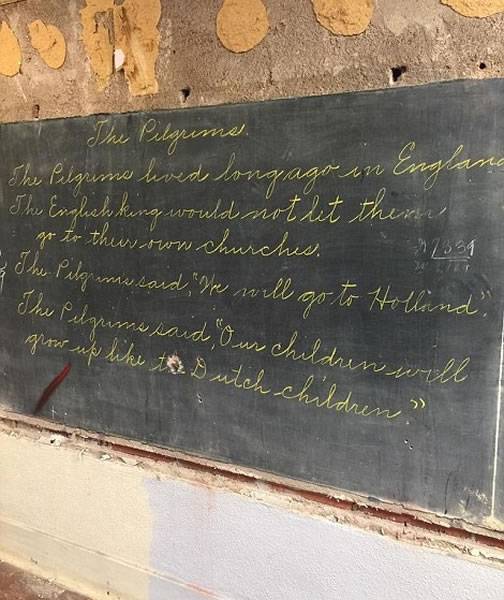 The Pilgrims.
The Pilgrims lived long ago in England
The English king would not let them
go to their own churches.
The Pilgrims said, "We will go to Holland."
The Pilgrims said, "Our children will
grow up like to Dutch children."